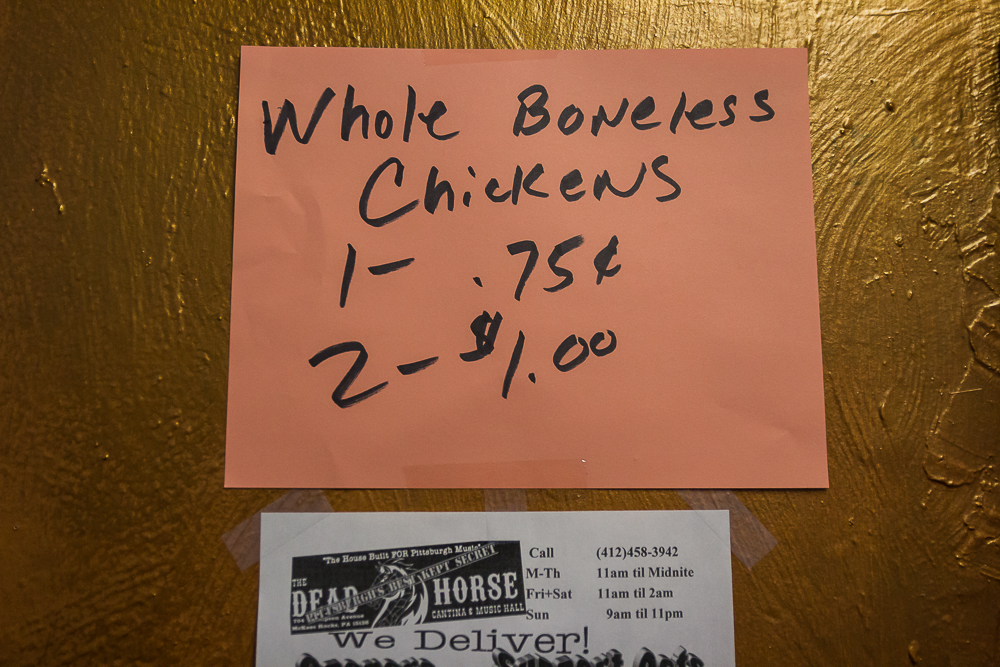 Whole Boneless
Chickens
1- .75¢
2- $1.00
"The House Built FOR Pittsburgh Music"
THE DEAD HORSE
PITTSBURGH'S BEST KEPT SECRET
CANTINA & MUSIC HALL
Avenue
McKees Rocks, PA 15136
Call (412)458-3942
M-Th 11am til Midnite
Fri+Sat 11am til 2am
Sun 9am til 11pm
We Deliver!